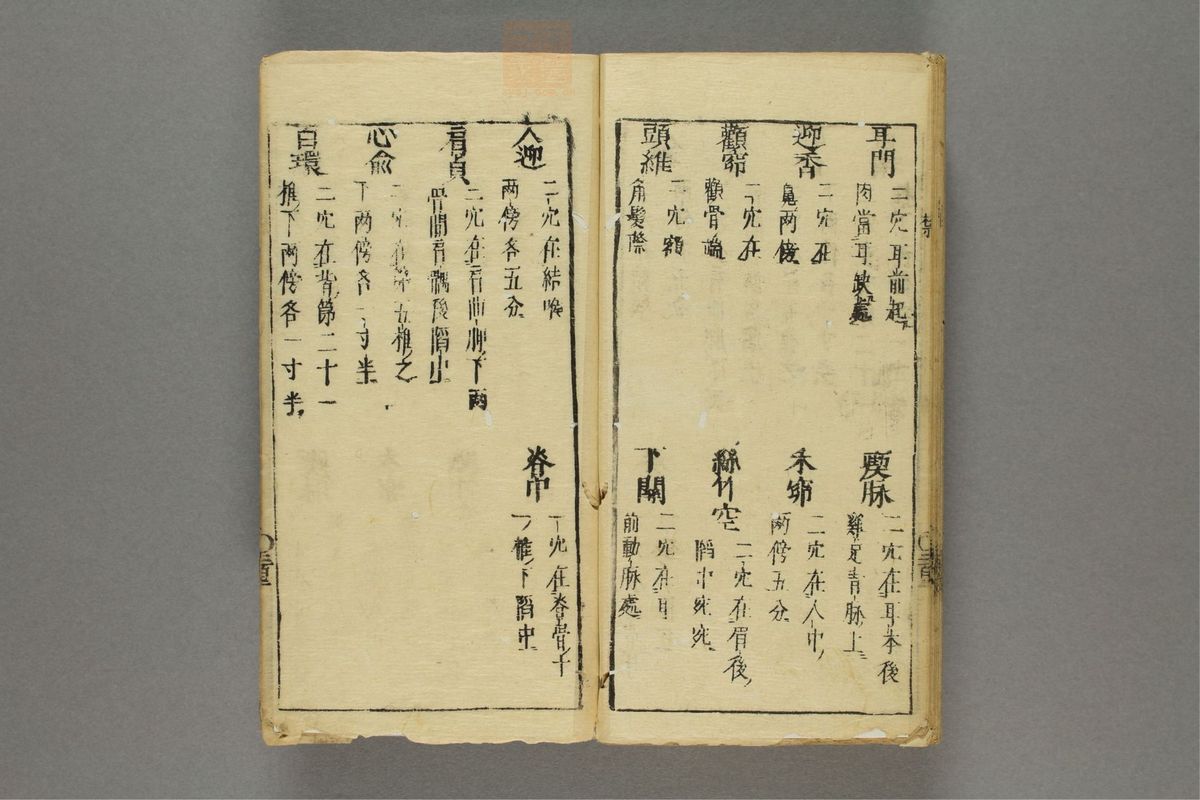 耳門
二穴耳前起
肉當耳缺處
迎香
二穴在
鼻兩傍
顴窌
二穴在
顴骨端
頭維
二穴額
角髮際
瘈脉
二穴在耳本後
雞足青脉上
禾窌
二穴在人中
兩傍五分
絲竹空
二穴在眉後
陷中宛宛
下關
二穴在耳
前動脉處
人迎
二穴在結喉
兩傍各五分
肩貞
二穴在肩曲胛下兩
骨間肩髃後陷中
心俞
二穴在第五椎之
下兩傍各一寸半
白環
二穴在背第二十一
椎下兩傍各一寸半
脊中
一穴在脊骨十
一椎下陷中